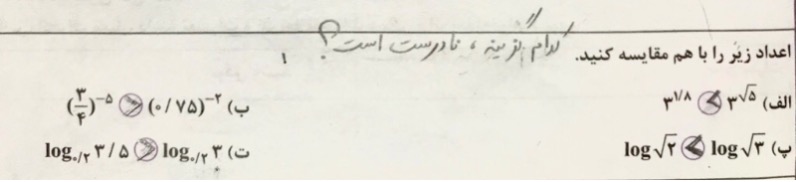 اعداد زیر را با هم مقایسه کنید. کدام گزینه، نادرست است؟ ۱
الف) ۳^{۱/۸} < ۳^{√۵}
ب) (۳/۴)^{-۵} > (۰/۷۵)^{-۲}
پ) log√۲ < log√۳
ت) log_{۰/۲} ۳/۵ > log_{۰/۲} ۳